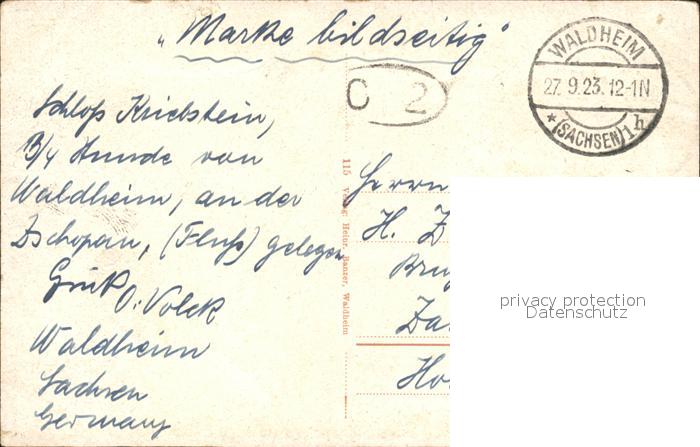 „Marke bildseitig"
WALDHEIM
27.9.23. 12-1N
* (SACHSEN) 1h
C 2
Schloß Kriebstein,
3/4 Stunde von
Waldheim, an der
Zschopau, (Fluß) gelegen
Gruß O. Volck
Waldheim
Sachsen
Germany
115 Verlag: Heinr. Banzer, Waldheim
Herrn
H. Z
Bru
Za
Ho
privacy protection
Datenschutz